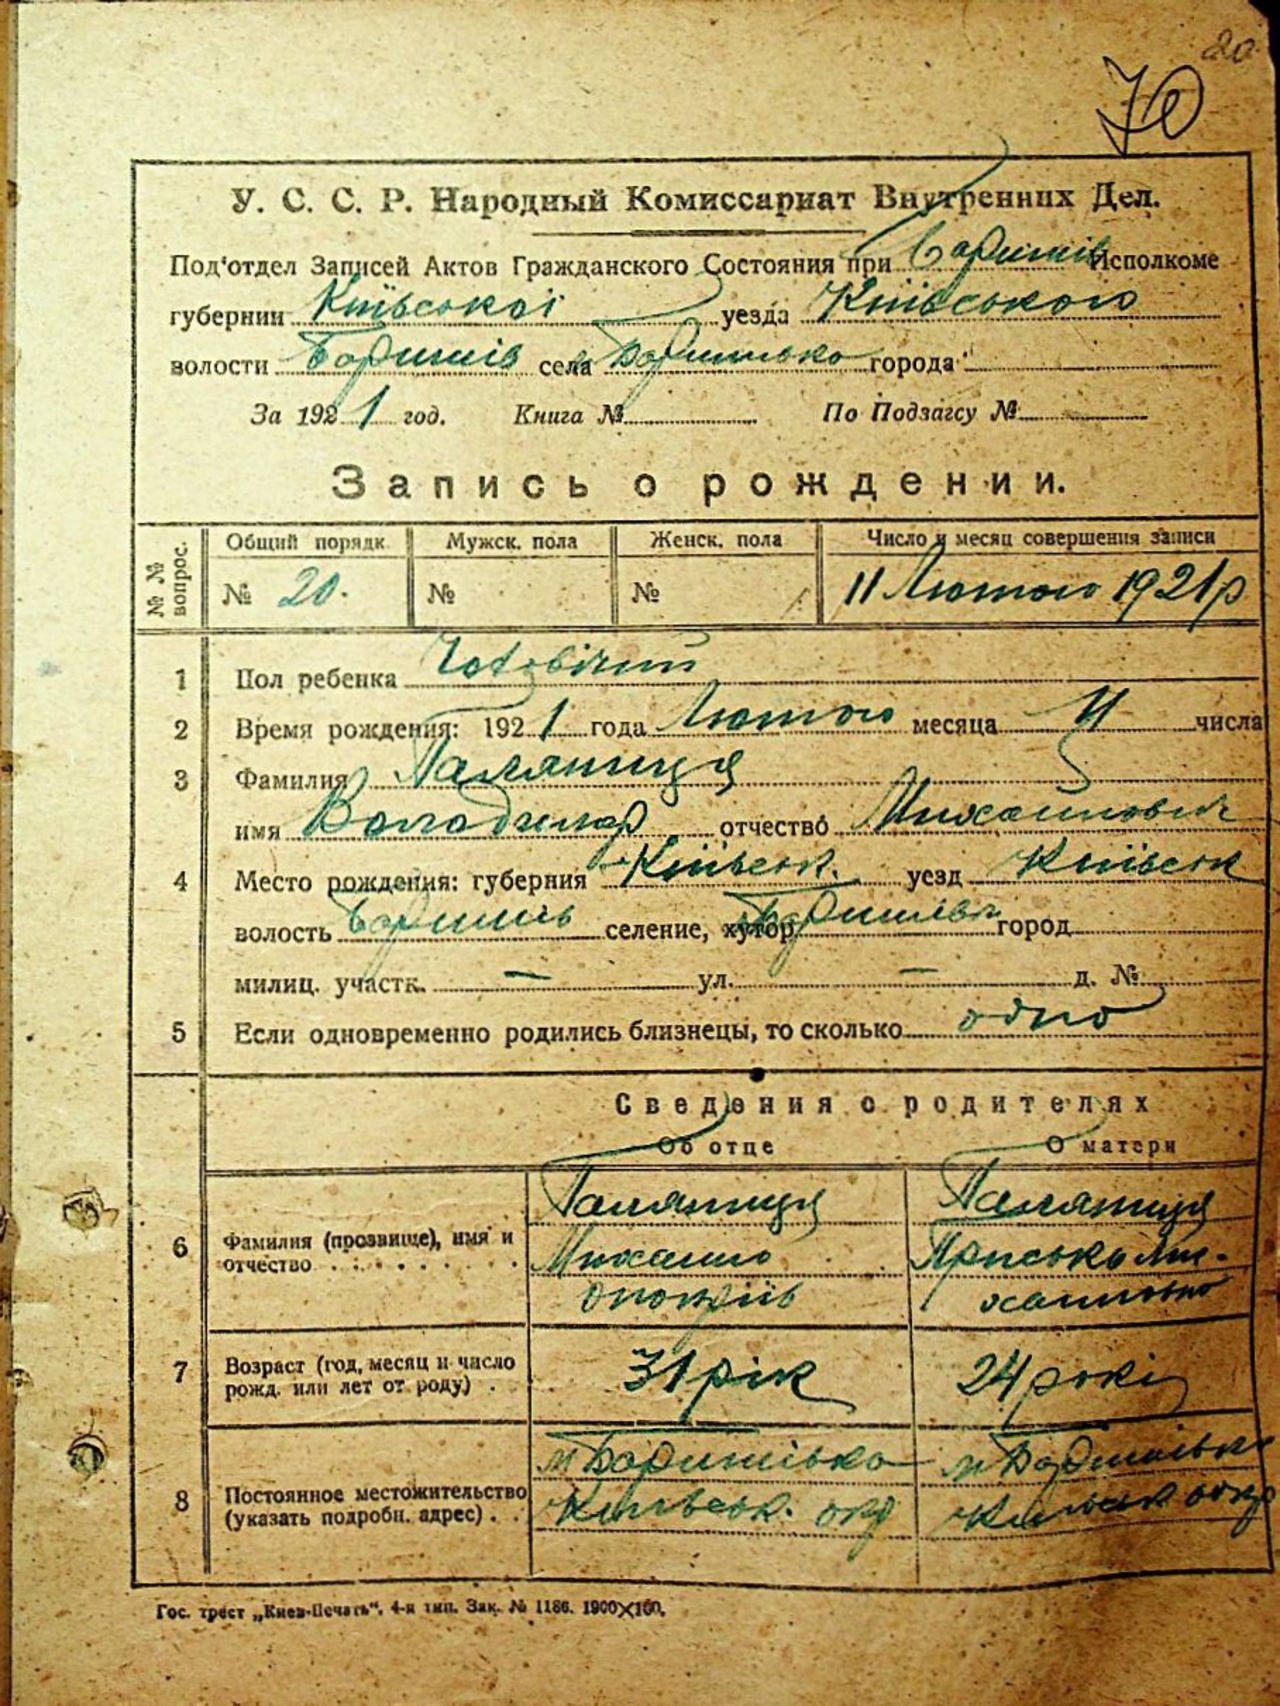 20
70
У. С. С. Р. Народный Комиссариат Внутренних Дел.
Под'отдел Записей Актов Гражданского Состояния при Баришів Исполкоме
губернии Київської уезда Київського
волости Баришів села Баришівка города
За 1921 год. Книга № По Подзагсу №
Запись о рождении.
№ № вопрос. Общий порядк. Мужск. пола Женск. пола Число и месяц совершения записи
№ 20. № № 11 Лютого 1921 р
1 Пол ребенка Чоловічий
2 Время рождения: 1921 года Лютого месяца числа
3 Фамилия Паляниця
имя Володимир отчество Михайлович
4 Место рождения: губерния Київськ. уезд Київськ
волость Баришів селение, хутор Баришівка город
милиц. участк. — ул. — д. №
5 Если одновременно родились близнецы, то сколько одно
Сведения о родителях
Об отце О матери
6 Фамилия (прозвище), имя и отчество Паляниця Паляниця
Михайло Приська Ми-
хайловна
7 Возраст (год, месяц и число рожд. или лет от роду) . 31 рік 24 рокі
8 Постоянное местожительство (указать подробн. адрес) . . м Баришівка м Баришівка
Київськ. окр Київськ окр
Гос. трест „Киев-Печать“. 4-я тип. Зак. № 1186. 1900×100.